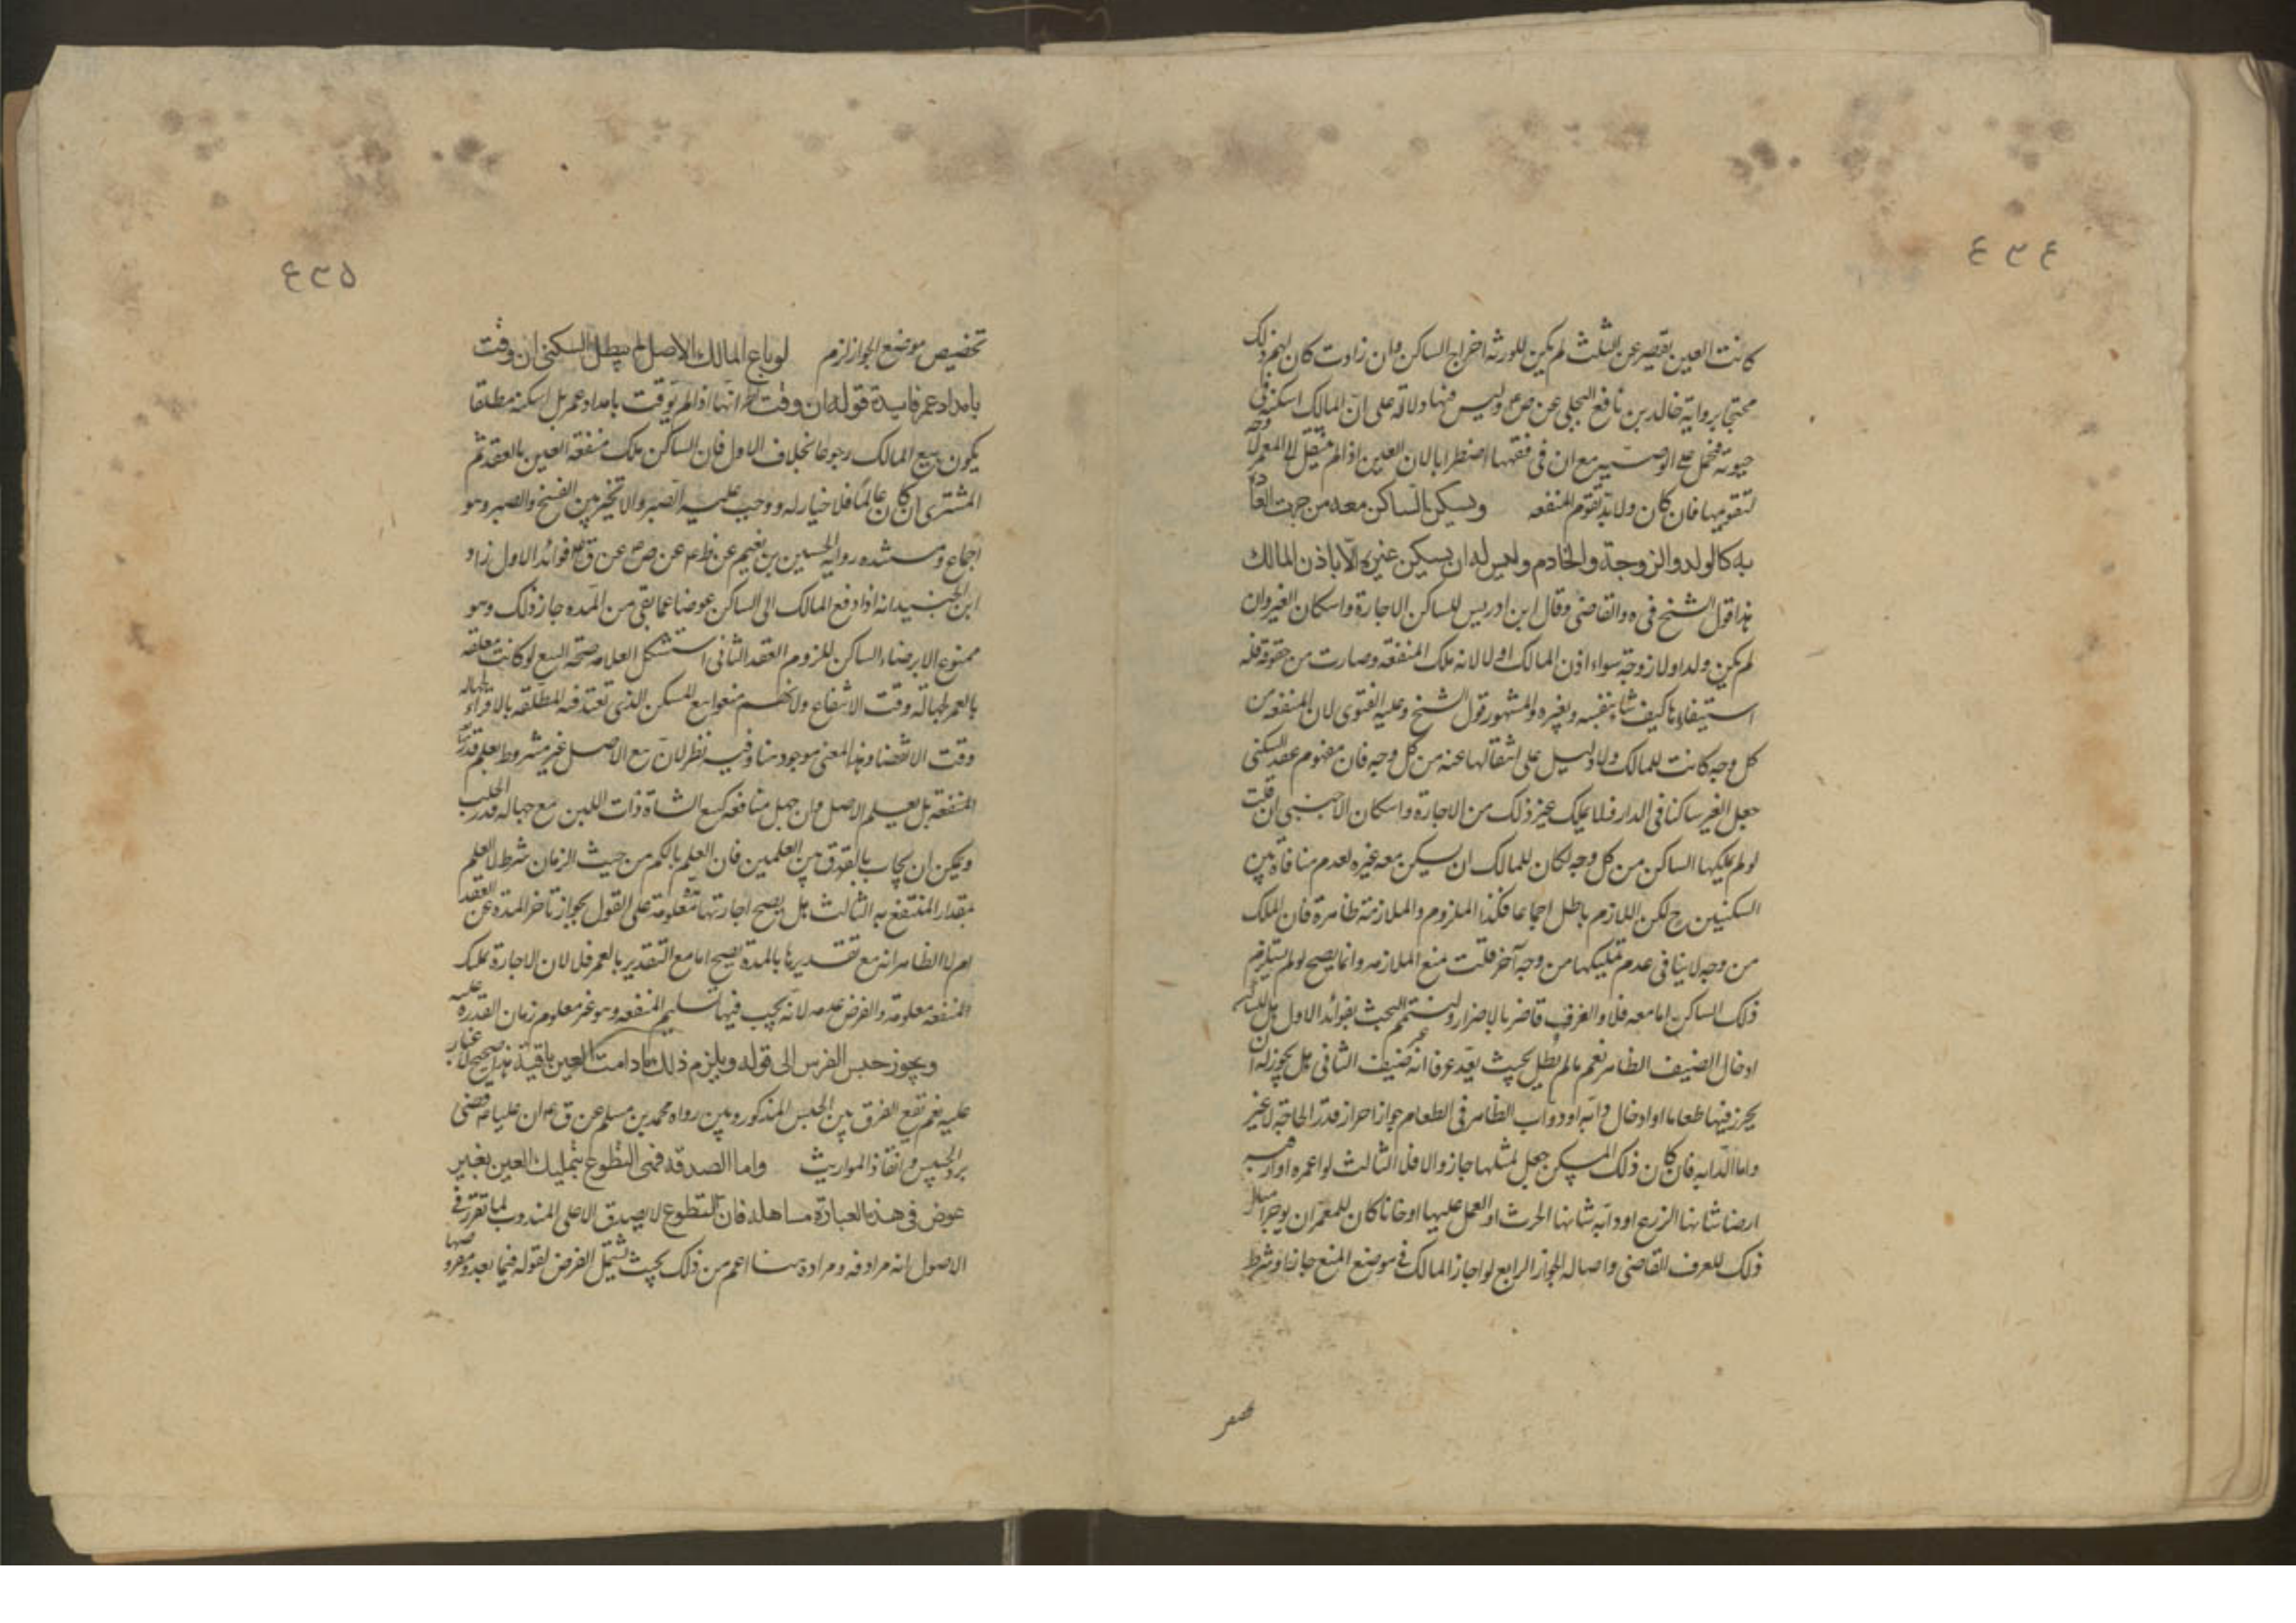 ٤٣٤
كانت العين يقصر عن الثلث لم يكن للورثة اخراج الساكن وان زادت كان لهم ذلك
محتجا برواية خالد بن نافع البجلي عن ص ع وليس فيها دلالة على ان المالك اسكنه في
حيوته فحمل على الوصية مع ان في فقهها اضطرابا لان العين اذا لم ينتقل الى المعمر لا وجه
لتقويمها فان كان ولا بد تقوم المنفعه ويسكن الساكن معه من جرت العادة
به كالولد والزوجة والخادم وليس له ان يسكن غيره الا باذن المالك
هذا قول الشيخ في ه والقاضي وقال ابن ادريس للساكن الاجارة واسكان الغير وان
لم يكن ولدا ولا زوجة سواء اذن المالك او لا لانه ملك المنفعة وصارت من حقوقه فله
استيفاؤها كيف شاء بنفسه وبغيره والمشهور قول الشيخ وعليه الفتوى لان المنفعة من
كل وجه كانت للمالك ولا دليل على انتقالها عنه من كل وجه فان مفهوم عقد السكنى
جعل الغير ساكنا في الدار فلا يملك غير ذلك من الاجارة واسكان الاجنبي ان قلت
لو لم يملكها الساكن من كل وجه لكان للمالك ان يسكن معه غيره لعدم منافاة بين
السكنيين ح لكن اللازم باطل اجماعا فكذا الملزوم والملازمة ظاهرة فان الملك
من وجه لا ينافي عدم تمليكها من وجه آخر قلت منع الملازمه وانما يصح لو لم يستلزم
ذلك الساكن اما معه فلا والعرف قاض بالاضرار ولنتمم البحث بفوائد الاول هل للساكن
ادخال الضيف الظاهر نعم ما لم يطل بحيث يعد عرفا انه غير ضيف الثاني هل يجوز له ان
يحرز فيها طعاما او ادخال دابه او دواب الظاهر في الطعام جواز احراز قدر الحاجة لا غير
واما الدابه فان كان ذلك المسكن جعل لمثلها جاز والا فلا الثالث لو اعمره او ارقبه
ارضا شانها الزرع او دابه شانها الحرث او العمل عليها او خانا كان للمعمر ان يوجر امثال
ذلك للعرف القاضي واصالة الجواز الرابع لو اجاز المالك في موضع المنع جاز او شرط
تخصيص
٤٣٥
تخصيص موضع الجواز لزم لو باع المالك الاصل لم يبطل السكنى ان وقت
بامد او عمر فايدة قوله ان وقت انها اذا لم يوقت بامد او عمر بل اسكنه مطلقا
يكون بيع المالك رجوعا بخلاف الاول فان الساكن ملك منفعة العين بالعقد ثم
المشتري ان كان عالما فلا خيار له ووجب عليه الصبر والا تخير بين الفسخ والصبر وهو
اجماع ومستنده رواية الحسين بن نعيم عن ظ ع عن ص ع عن ق ع فوائد الاول زاد
ابن الجنيد انه اذا دفع المالك الى الساكن عوضا عما بقي من المده جاز ذلك وهو
ممنوع الا برضاء الساكن للزوم العقد الثاني استشكل العلامه صحة البيع لو كانت معلقه
بالعمر لجهالة وقت الانتفاع ولانهم منعوا بيع المسكن الذي تعتد فيه المطلقه بالاقراء لجهاله
وقت الانقضا وهذا المعنى موجود هنا وفيه نظر لان بيع الاصل غير مشروط بعلم قدر
المنفعة بل يعلم الاصل وان جهل منافعه كبيع الشاة ذات اللبن مع جهاله قدر الحلب
ويمكن ان يجاب بالفرق بين العلمين فان العلم بالكم من حيث الزمان شرط لا العلم
بمقدار المنتفع به الثالث هل يصح اجارتها معلومة على القول بجواز تاخر المدة عن العقد
ام لا الظاهر انه مع تقديرها بالمدة يصح اما مع التقدير بالعمر فلا لان الاجارة تملك
المنفعه معلومة والفرض عدمه لانه يجب فيها تسليم المنفعه وهو غير معلوم زمان القدرة عليه
ويجوز حبس الفرس الى قوله ويلزم ذلك ما دامت العين باقية هذا صحيح لا غبار
عليه نعم تقع الفرق بين الحبس المذكور وبين رواه محمد بن مسلم عن ق ع ان عليا ع قضى
برد الحبيس وانفاذ المواريث واما الصدقه فهي التطوع بتمليك العين بغير
عوض في هذه العبارة مساهله فان التطوع لا يصدق الا على المندوب لما تقرر في
الاصول انه مرادفه ومراده هنا اعم من ذلك بحيث يشمل الفرض لقوله فيما بعد ومفروضها